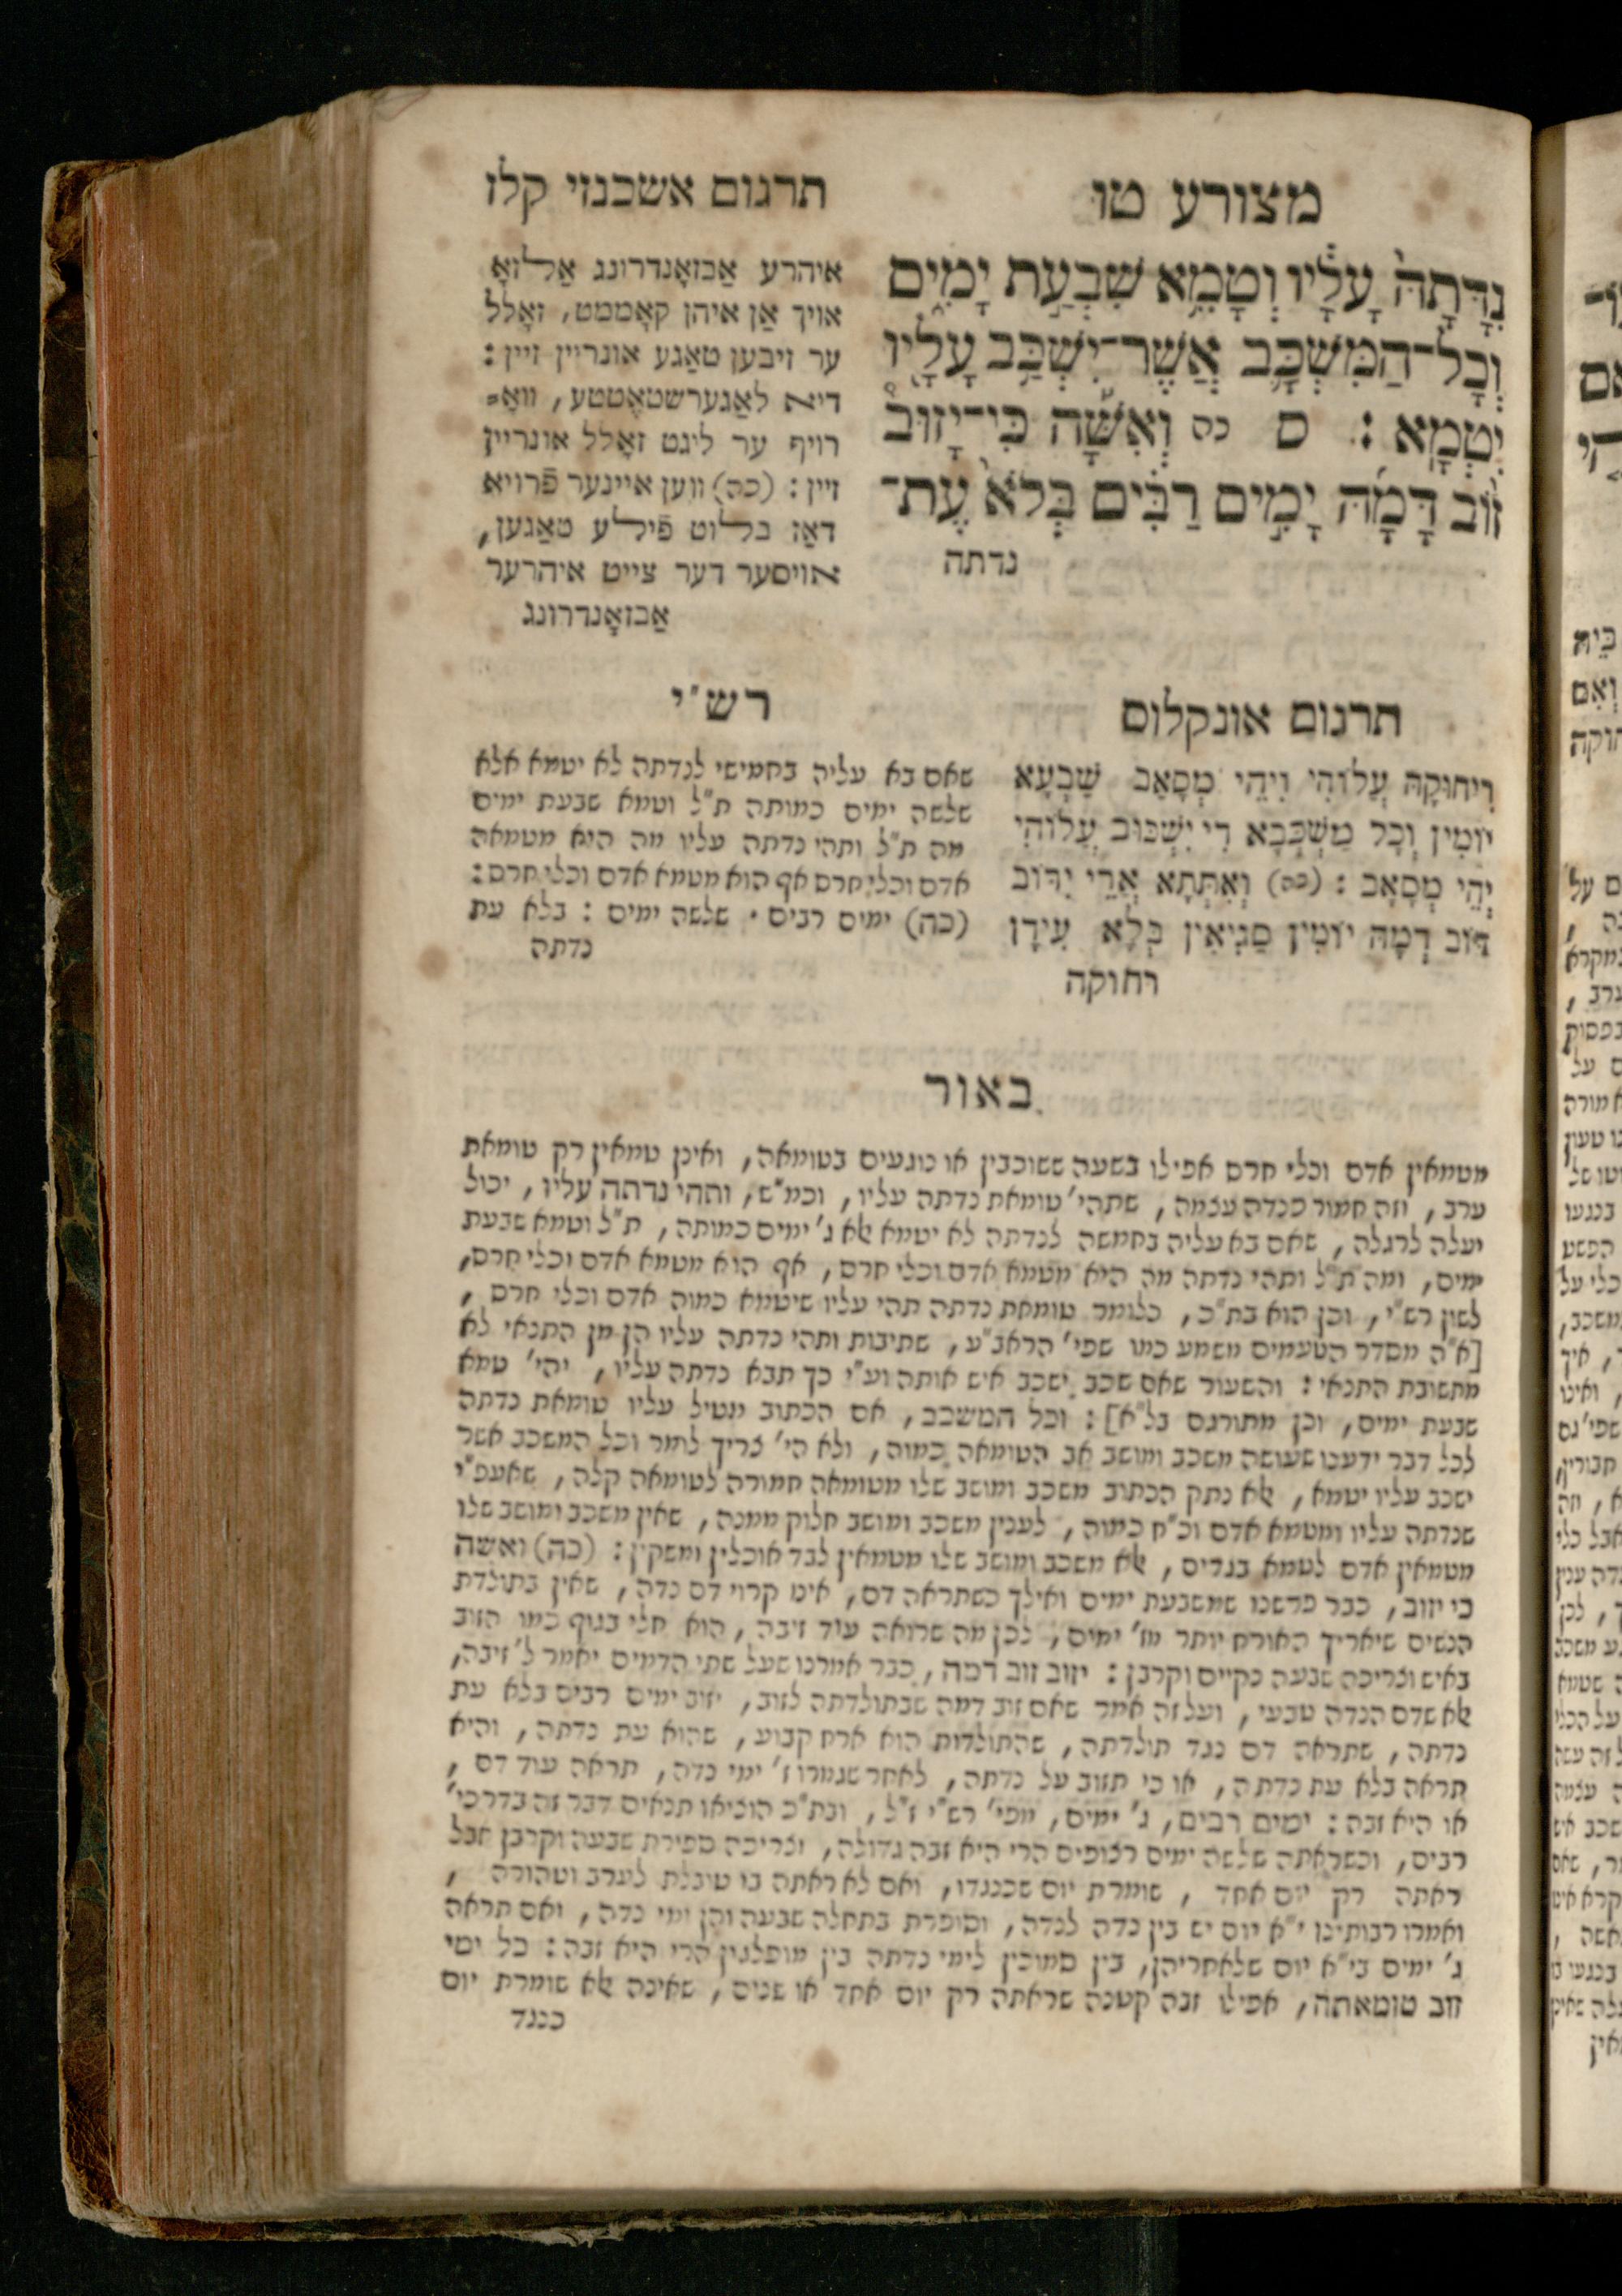 מצורע טו
תרגום אשכנזי קלז
נִדָּתָהּ֙ עָלָ֔יו וְטָמֵ֖א שִׁבְעַ֣ת יָמִ֑ים
וְכָל־הַמִּשְׁכָּ֛ב אֲשֶׁר־יִשְׁכַּ֥ב עָלָ֖יו
יִטְמָֽא : ס כה וְאִשָּׁ֡ה כִּֽי־יָזוּב֩
ז֨וֹב דָּמָ֜הּ יָמִ֣ים רַבִּ֗ים בְּלֹא֙ עֶת־
נדתה
איהרע אַבזאָנדרונג אַלזאָ
אויך אַן איהן קאָממט, זאָלל
ער זיבען טאַגע אונריין זיין :
דיא לאַגערשטאֶטטע, וואָ=
רויף ער ליגט זאָלל אונריין
זיין : (כה) ווען איינער פֿרויא
דאַז בלוט פֿילע טאַגען,
אויסער דער צייט איהרער
אַבזאָנדרונג
תרגום אונקלוס
רִיחוּקָהּ עֲלוֹהִי וִיהֵי מְסָאַב שִׁבְעָא
יוֹמִין וְכָל מִשְׁכְּבָא דִי יִשְׁכּוּב עֲלוֹהִי
יְהֵי מְסָאָב : (כה) וְאִתְּתָא אֲרֵי יְדוּב
דּוֹב דְּמָהּ יוֹמִין סַגִּיאִין בְּלָא עִידָן
רחוקה
רש"י
שאם בא עליה בחמישי לנדתה לא יטמא אלא
שלשה ימים כמותה ת"ל וטמא שבעת ימים
מה ת"ל ותהי נדתה עליו מה היא מטמאה
אדם וכלי חרס אף הוא מטמא אדם וכלי חרס :
(כה) ימים רבים · שלשה ימים : בלא עת
נדתה
באור
מטמאין אדם וכלי חרס אפילו בשעה ששוכבין או נוגעים בטומאה, ואינן טמאין רק טומאת
ערב, וזה חמור כנדה עצמה, שתהי' טומאת נדתה עליו, וכמ"ש, ותהי נדתה עליו, יכול
יעלה לרגלה, שאם בא עליה בחמשה לנדתה לא יטמא אלא ג' ימים כמותה, ת"ל וטמא שבעת
ימים, ומה ת"ל ותהי נדתה מה היא מטמא אדם וכלי חרס, אף הוא מטמא אדם וכלי חרס,
לשון רש"י, וכן הוא בת"כ, כלומר טומאת נדתה תהי עליו שיטמא כמוה אדם וכלי חרס,
[א"ה מסדר הטעמים משמע כמו שפי' הראב"ע, שתיבות ותהי נדתה עליו הן מן התנאי לא
מתשובת התנאי : והשעור שאם שכב ישכב איש אותה וע"י כך תבא נדתה עליו, יהי' טמא
שבעת ימים, וכן מתורגם בל"א] : וכל המשכב, אם הכתוב מטיל עליו טומאת נדתה
לכל דבר ידענו שעושה משכב ומושב אב הטומאה כמוה, ולא הי' צריך לומר וכל המשכב אשר
ישכב עליו יטמא, אלא נתק הכתוב משכב ומושב שלו מטומאה חמורה לטומאה קלה, שאעפ"י
שנדתה עליו ומטמא אדם וכ"ח כמוה, לענין משכב ומושב חלוק ממנה, שאין משכב ומושב שלו
מטמאין אדם לטמא בגדים, אלא משכב ומושב שלו מטמאין לבד אוכלין ומשקין : (כה) ואשה
כי יזוב, כבר פרשנו שמשבעת ימים ואילך כשתראה דם, אינו קרוי דם נדה, שאין בתולדת
הנשים שיאריך האורח יותר מז' ימים, לכן מה שרואה עוד זיבה, הוא חלי בגוף כמו הזוב
באיש וצריכה שבעה נקיים וקרבן : יזוב זוב דמה, כבר אמרנו שעל שתי הדמים יאמר ל' זיבה,
אלא שדם הנדה טבעי, ועל זה אמר שאם זוב דמה שבתולדתה לזוב, יזוב ימים רבים בלא עת
נדתה, שתראה דם נגד תולדתה, שהתולדות הוא ארח קבוע, שהוא עת נדתה, והיא
תראה בלא עת נדתה, או כי תזוב על נדתה, לאחר שגמרו ז' ימי נדה, תראה עוד דם,
או היא זבה : ימים רבים, ג' ימים, מפי' רש"י ז"ל, ובת"כ הוציאו תנאים דבר זה בדרכי'
רבים, וכשראתה שלשה ימים רצופים הרי היא זבה גדולה, וצריכה ספירת שבעה וקרבן אבל
ראתה רק יום אחד, שומרת יום שכנגדו, ואם לא ראתה בו טובלת לערב וטהורה,
ואמרו רבותינו י"א יום יש בין נדה לנדה, וסופרת בתחלה שבעה והן ימי נדה, ואם תראה
ג' ימים בי"א יום שלאחריהן, בין סמוכין לימי נדתה בין מופלגין הרי היא זבה : כל ימי
זוב טומאתה, אפילו זבה קטנה שראתה רק יום אחד או שנים, שאינה אלא שומרת יום
כנגד